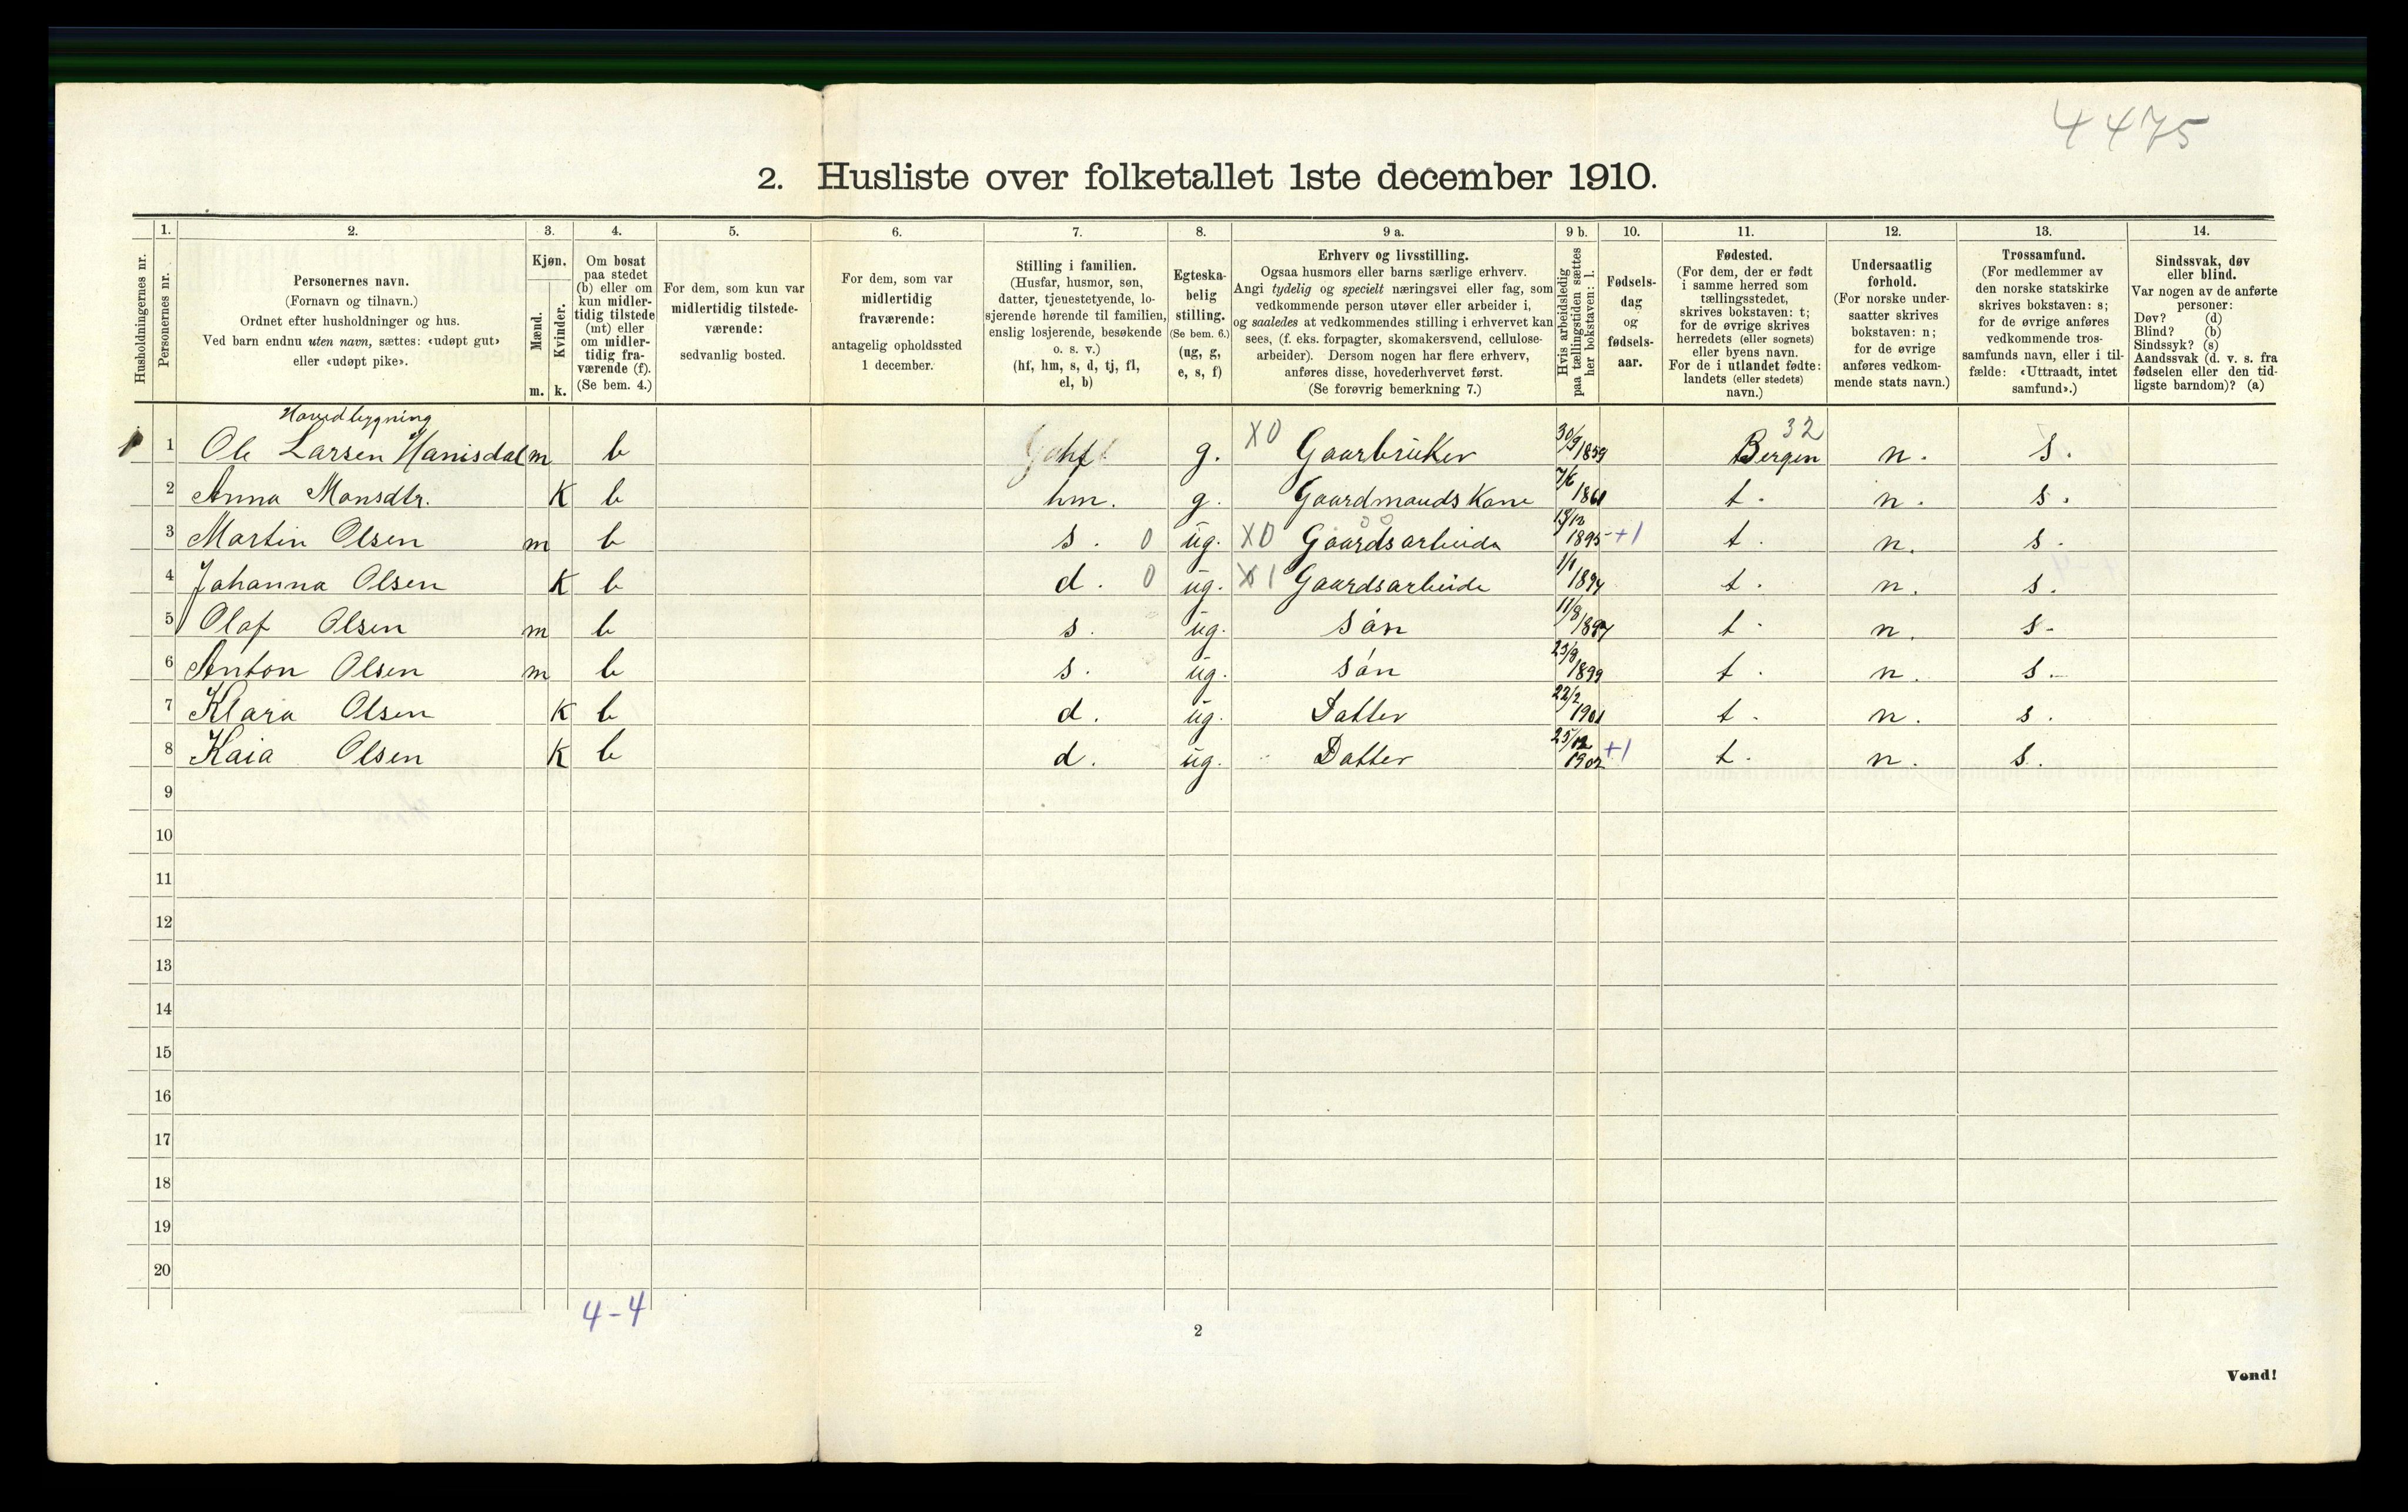 4475
2. Husliste over folketallet 1ste december 1910.
Husholdningernes nr.
1.
Personernes nr.
2.
Personernes navn.
(Fornavn og tilnavn.)
Ordnet efter husholdninger og hus.
Ved barn endnu uten navn, sættes: «udøpt gut»
eller «udøpt pike».
3.
Kjøn.
Mænd.
Kvinder.
m. k.
4.
Om bosat
paa stedet
(b) eller om
kun midler-
tidig tilstede
(mt) eller
om midler-
tidig fra-
værende (f).
(Se bem. 4.)
5.
For dem, som kun var
midlertidig tilstede-
værende:
sedvanlig bosted.
6.
For dem, som var
midlertidig
fraværende:
antagelig opholdssted
1 december.
7.
Stilling i familien.
(Husfar, husmor, søn,
datter, tjenestetyende, lo-
sjerende hørende til familien,
enslig losjerende, besøkende
o. s. v.)
(hf, hm, s, d, tj, fl,
el, b)
8.
Egteska-
belig
stilling.
(Se bem. 6.)
(ug, g,
e, s, f)
9 a.
Erhverv og livsstilling.
Ogsaa husmors eller barns særlige erhverv.
Angi tydelig og specielt næringsvei eller fag, som
vedkommende person utøver eller arbeider i,
og saaledes at vedkommendes stilling i erhvervet kan
sees, (f. eks. forpagter, skomakersvend, cellulose-
arbeider). Dersom nogen har flere erhverv,
anføres disse, hovederhvervet først.
(Se forøvrig bemerkning 7.)
9 b.
Hvis arbeidsledig
paa tællingstiden sættes
her bokstaven: l.
10.
Fødsels-
dag
og
fødsels-
aar.
11.
Fødested.
(For dem, der er født
i samme herred som
tællingsstedet,
skrives bokstaven: t;
for de øvrige skrives
herredets (eller sognets)
eller byens navn.
For de i utlandet fødte:
landets (eller stedets)
navn.)
12.
Undersaatlig
forhold.
(For norske under-
saatter skrives
bokstaven: n;
for de øvrige
anføres vedkom-
mende stats navn.)
13.
Trossamfund.
(For medlemmer av
den norske statskirke
skrives bokstaven: s;
for de øvrige anføres
vedkommende tros-
samfunds navn, eller i til-
fælde: «Uttraadt, intet
samfund».)
14.
Sindssvak, døv
eller blind.
Var nogen av de anførte
personer:
Døv? (d)
Blind? (b)
Sindssyk? (s)
Aandssvak (d. v. s. fra
fødselen eller den tid-
ligste barndom)? (a)
Hovedbygning
1 Ole Larsen Hanisdal m b hf g. X0 Gaarbrüker 30/9 1859 Bergen 32 n. s.
2 Anna Monsdtr. K b hm. g. Gaardmands Kone 7/6 1861 t. n. s.
3 Martin Olsen m b s. 0 üg. X0 Gaardsarbeide 1895 +1 t. n. s.
4 Johanna Olsen K b d. 0 üg. X 1 Gaardsarbeide 1/1 1894 t. n. s.
5 Olaf Olsen m b s. üg. Sön 11/8 1897 t. n. s.
6 Anton Olsen m b s. üg. Sön 23/8 1899 t. n. s.
7 Klara Olsen K b d. üg. Datter 22/2 1901 t. n. s.
8 Kaia Olsen K b d. üg. Datter 25/12 1902 +1 t. n. s.
9
10
11
12
13
14
15
16
17
18
19
20
4-4
2
Vend!